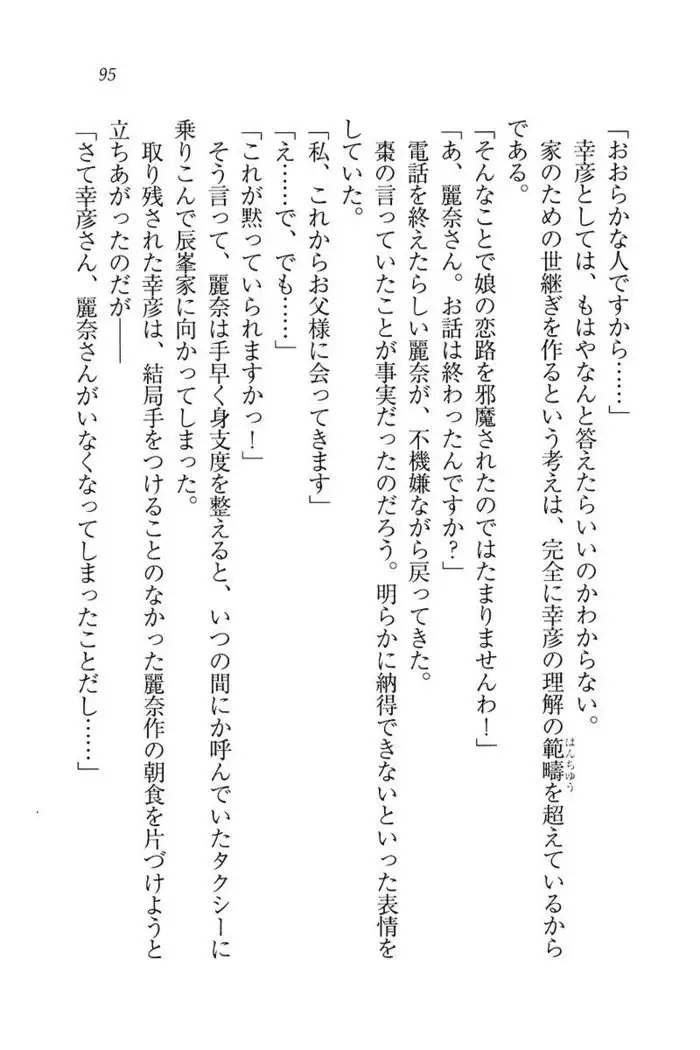 95
「おおらかな人ですから……」
幸彦としては、もはやなんと答えたらいいのかわからない。
家のための世継ぎを作るという考えは、完全に幸彦の理解の範疇を超えているから
はんちゆう
である。
「そんなことで娘の恋路を邪魔されたのではたまりませんわ！」
「あ、麗奈さん。お話は終わったんですか？」
電話を終えたらしい麗奈が、不機嫌ながら戻ってきた。
棗の言っていたことが事実だったのだろう。明らかに納得できないといった表情を
していた。
「私、これからお父様に会ってきます」
「え……で、でも……」
「これが黙っていられますかっ！」
そう言って、麗奈は手早く身支度を整えると、いつの間にか呼んでいたタクシーに
乗りこんで辰峯家に向かってしまった。
取り残された幸彦は、結局手をつけることのなかった麗奈作の朝食を片づけようと
立ちあがったのだが――
「さて幸彦さん、麗奈さんがいなくなってしまったことだし……」